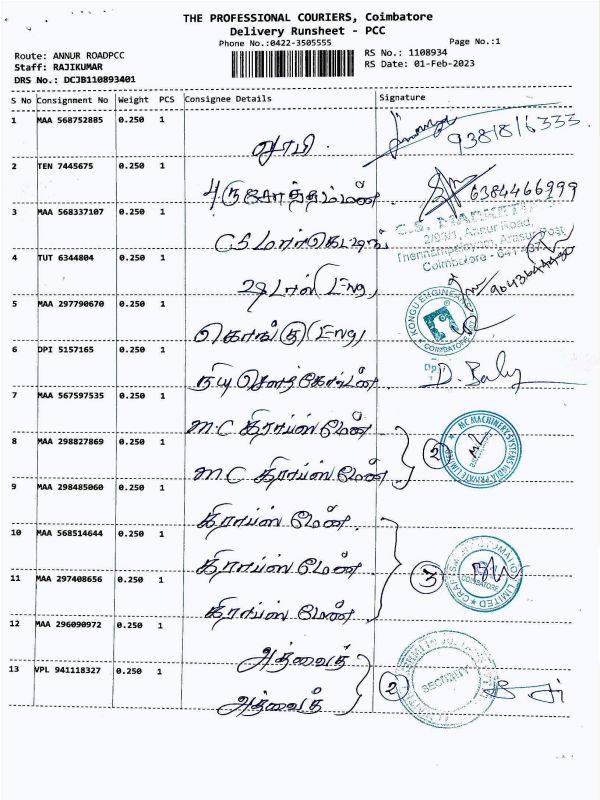 THE PROFESSIONAL COURIERS, Coimbatore
Delivery Runsheet - PCC
Phone No.:0422-3505555
Page No.:1
Route: ANNUR ROADPCC
Staff: RAJIKUMAR
DRS No.: DCJB110893401
RS No.: 1108934
RS Date: 01-Feb-2023
S No Consignment No Weight PCS Consignee Details Signature
1 MAA 568752885 0.250 1
9381816333
2 TEN 7445675 0.250 1
6384466999
3 MAA 568337107 0.250 1
CS மார்கெட்டிங்
C.S. MARKETING
Annur Road,
Arasur Post
Coimbatore - 641 407
4 TUT 6344804 0.250 1
5 MAA 297790670 0.250 1
கொங்கு Eng
KONGU ENGINEERS
COIMBATORE
6 DPI 5157165 0.250 1
7 MAA 567597535 1 0.250
M.C கிராப்ஸ் மேன்
8 MAA 298827869 0.250 1
M C கிராப்ஸ் மேன்
2
MC MACHINERY SYSTEMS INDIA PRIVATE LIMITED
9 MAA 298485060 0.250 1
கிராப்ஸ் மேன்
10 MAA 568514644 0.250 1
கிராப்ஸ் மேன்
3
11 MAA 297408656 0.250 1
கிராப்ஸ் மேன்
12 MAA 296090972 0.250 1
அத்வைத்
13 VPL 941118327 0.250 1
அத்வைத்
2
SECURITY